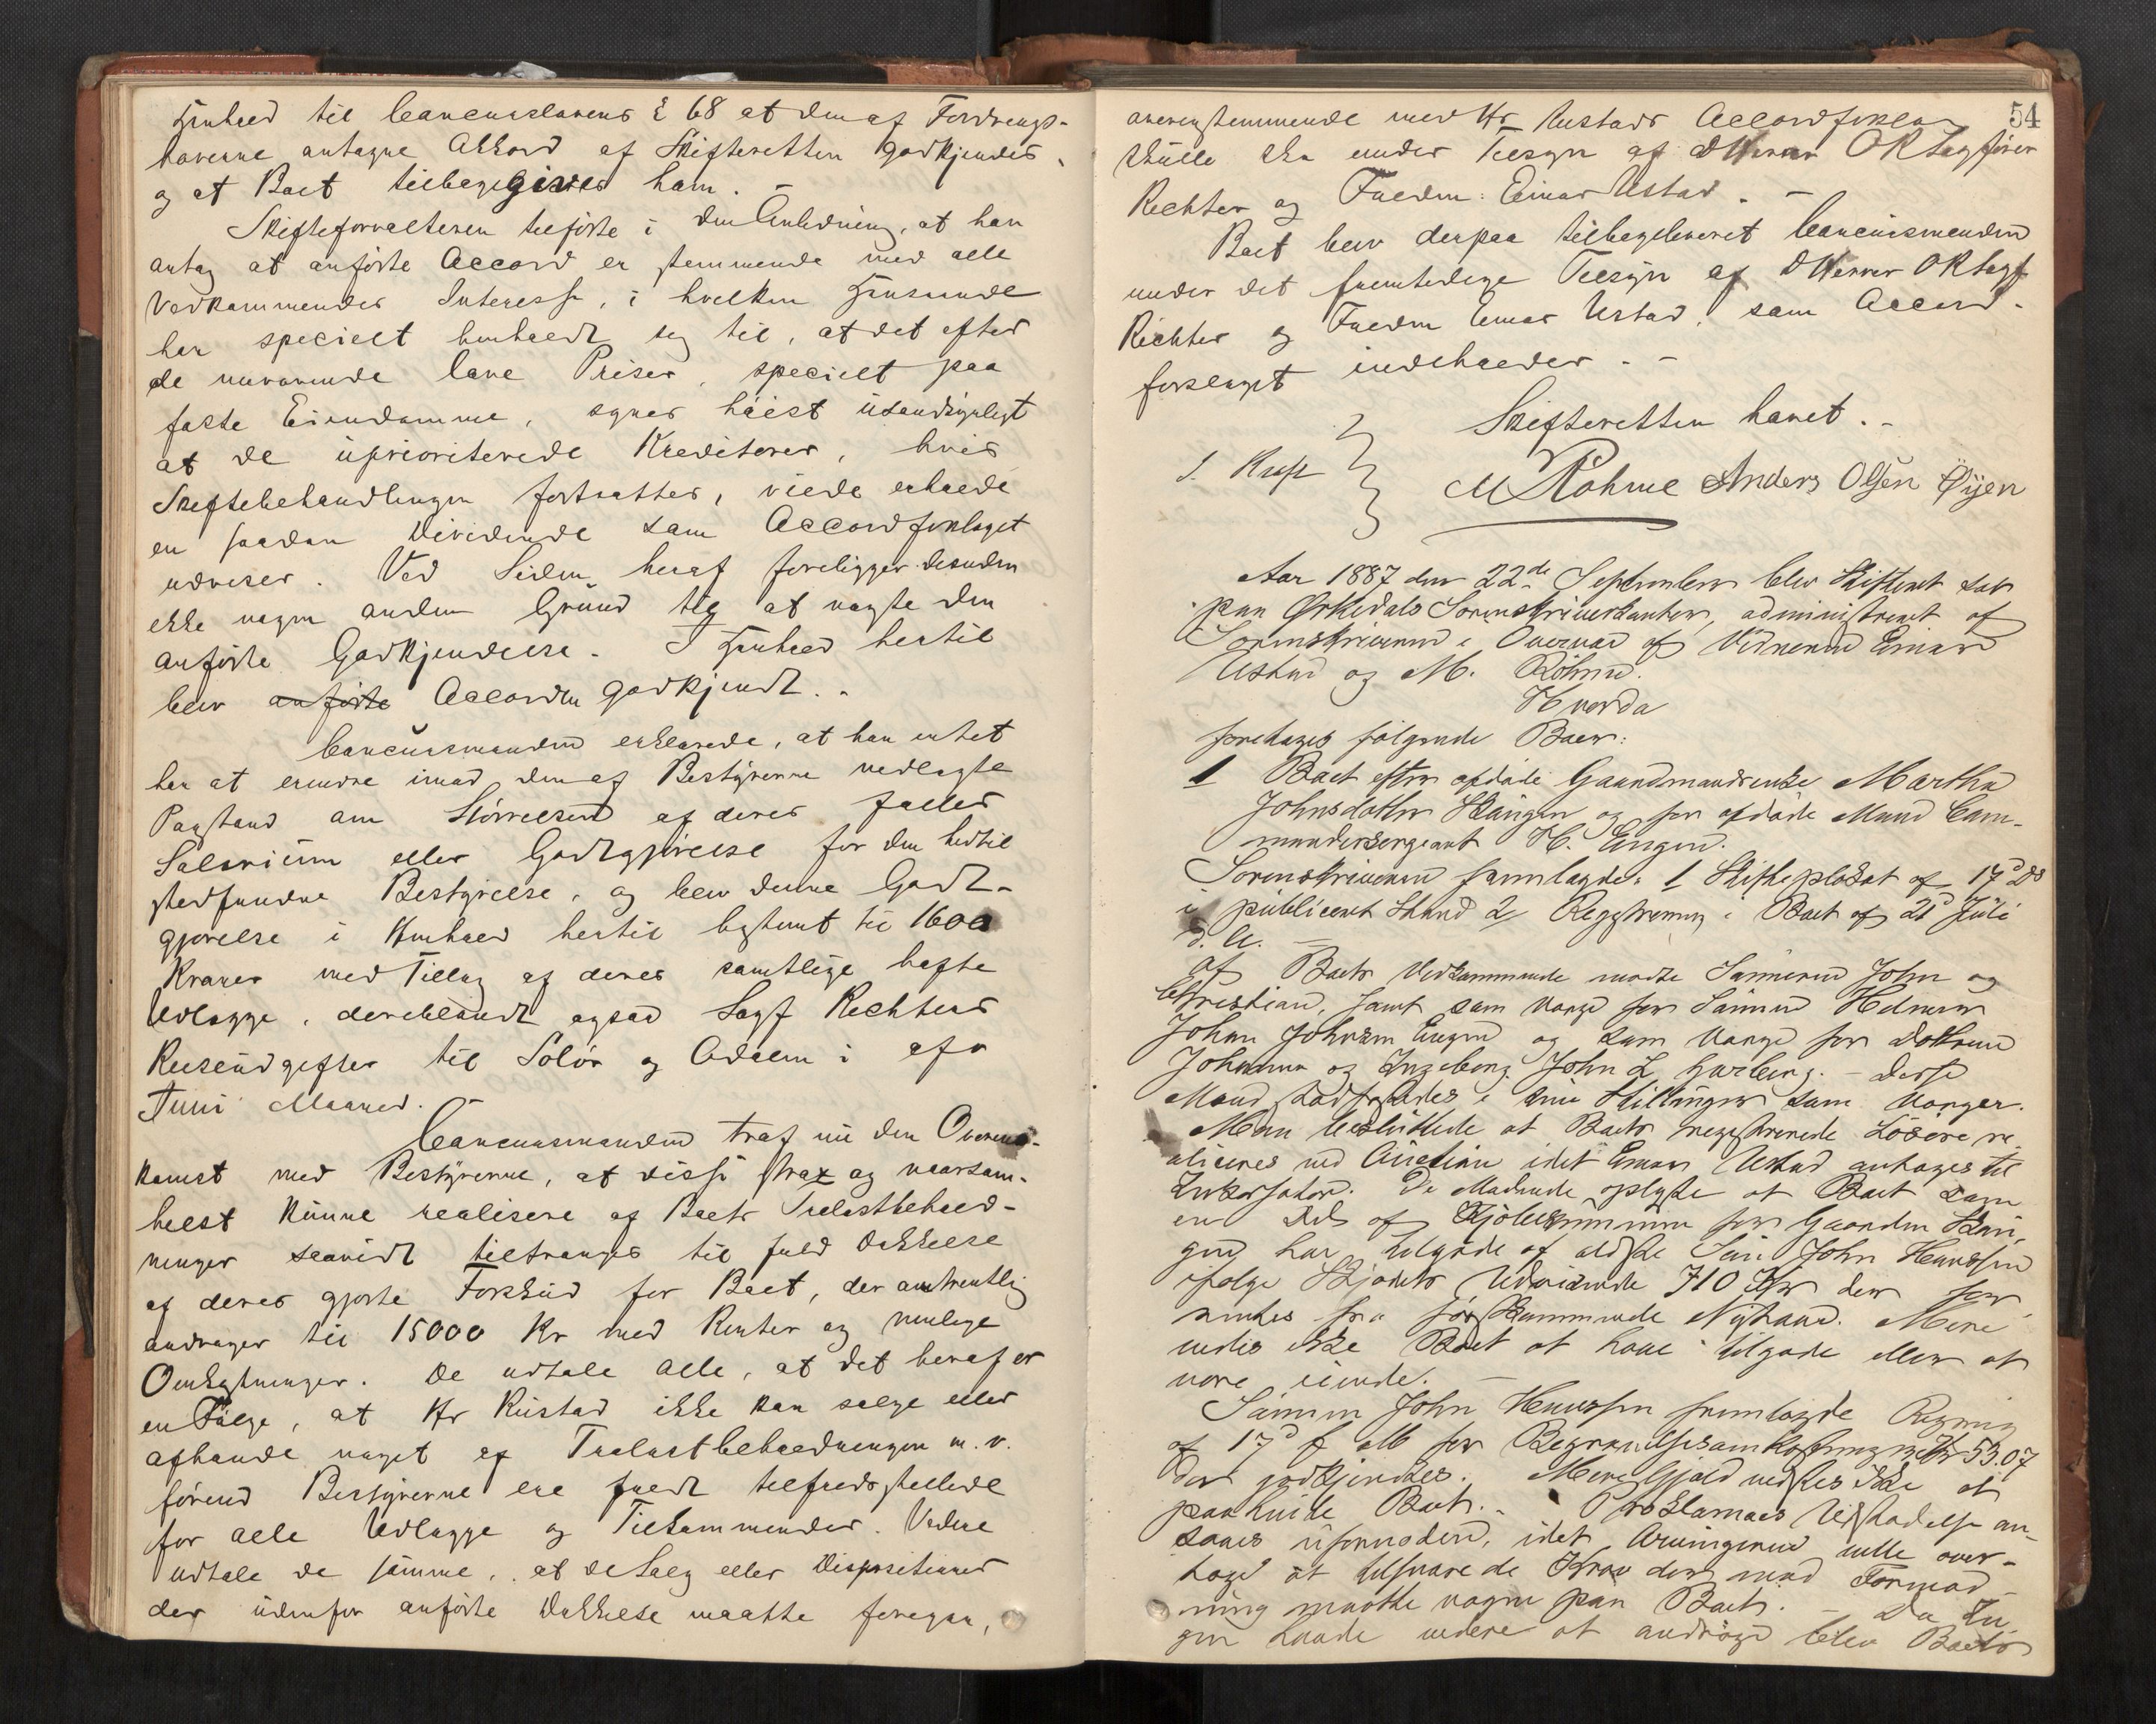 Henhold til Concurslovens § 68 at den af Fordrings-
haverne antagne Akkord af Skifteretten godkjendes,
og at Boet tilbagegives ham. -
Skifteforvalteren tilførte i den Anledning, at han
antog at anførte Accord er stemmende med alle
Vedkommendes Interesse, i hvilken Henseende
han specielt henholdt sig til, at det efter
de nuværende lave Priser, specielt paa
faste Eiendomme, synes høist usandsynligt
at de uprioriterede Kreditorer, hvis
Skiftebehandlingen fortsattes, vilde erholde
en saadan Dividende som Accordforslaget
udviser. Ved Siden heraf foreligger desuden
ikke nogen anden Grund til at nægte den
anførte Godkjendelse. I Henhold hertil
blev anførte Accorden godkjendt. -
Concursmanden erklærede, at han intet
har at erindre imod den af Bestyrerne nedlagte
Paastand om Størrelsen af deres fælles
Salærium eller Godtgjørelse for den hidtil
stedfundne Bestyrelse, og blev denne Godt-
gjørelse i Henhold hertil bestemt til 1600
Kroner med Tillæg af deres samtlige hafte
Udlægge, deriblandt ogsaa Sagf Richters
Reiseudgifter til Solør og Odalen i afv
Juni Maaned. -
Concursmanden traf nu den Overens-
komst med Bestyrerne, at disse strax og naarsom-
helst kunne realisere af Boets Trælastbehold-
ninger saavidt tiltrænges til fuld Dækkelse
af deres gjorte Forskud for Boet, der omtrentlig
andrager til 15000 Kr med Renter og mulige
Omkostninger. De udtale alle, at det heraf er
en Følge, at Hr Rustad ikke kan sælge eller
afhænde noget af Trælastbeholdningen m. v.
førend Bestyrerne ere fuldt tilfredsstillede
for alle Udlægge og Tilkommender. Videre
udtale de samme, at de Salg eller Dispositioner
der udenfor anførte Dækkelse maatte foregaa,
54
overenstemmende med Hr Rustads Accordforslag
skulle ske under Tilsyn af DHerrer ORSagfører
Richter og Fuldm: Einar Ustad. -
Boet blev derpaa tilbageleveret Concursmanden
under det fremtidige Tilsyn af DHerrer ORSagf
Richter og Fuldm Einar Ustad, som Accord-
forslaget indeholder. -
Skifteretten hævet. -
J. Krefz
M Röhme Anders Olsen Öijen
Aar 1887 den 22de September blev Skifteret sat
paa Orkedals Sorenskriverkontor, administreret af
Sorenskriveren i Overvær af Vidnerne Einar
Ustad og M. Röhme.
Hvorda
foretoges følgende Boer:
1 Boet efter afdøde Gaardmandsenke Martha
Johnsdatter Skaugen og før afdøde Mand Com-
mandersergeant H. Engen.
Sorenskriveren fremlagde: 1 Skifteplakat af 17d Ds
i publiceret Stand 2, Registrering i Boet af 21d Juli
d. A. -
Af Boets Vedkommende mødte Sønnerne John og
Christian, samt som Værge for Sønnen Helmer
Johan Johnsen Engen og som Værge for Døttrene
Johanna og Ingeborg John L Garberg. - Disse
Mænd stadfæstedes i sine Stillinger som Værger.
Man besluttede at Boets registrerede Løsøre re-
aliseres ved Auction idet Einar Ustad antoges til
Inkassator. De Mødende oplyste at Boet som
en Del af Kjøbesummen for Gaarden Skau-
gen har tilgode af ældste Søn John Hansen
ifølge Skjødets Udvisende 710 Kr der for
rentes fra førstkommende Nytaar. Mere
vides ikke Boet at have tilgode eller at
være eiende. -
Sønnen John Hansen fremlagde Regning
af 17d f M for Begravelsesomkostninger Kr 53.07
der godkjendtes. Mere Gjæld vidstes ikke at
paahvile Boet. - Proklamas Udstædelse an-
saaes ufornøden, idet Arvingerne ville over-
tage at tilsvare de Krav der mod Formod-
ning maatte vogne paa Boet. - Da In-
gen havde videre at andrage blev Boets